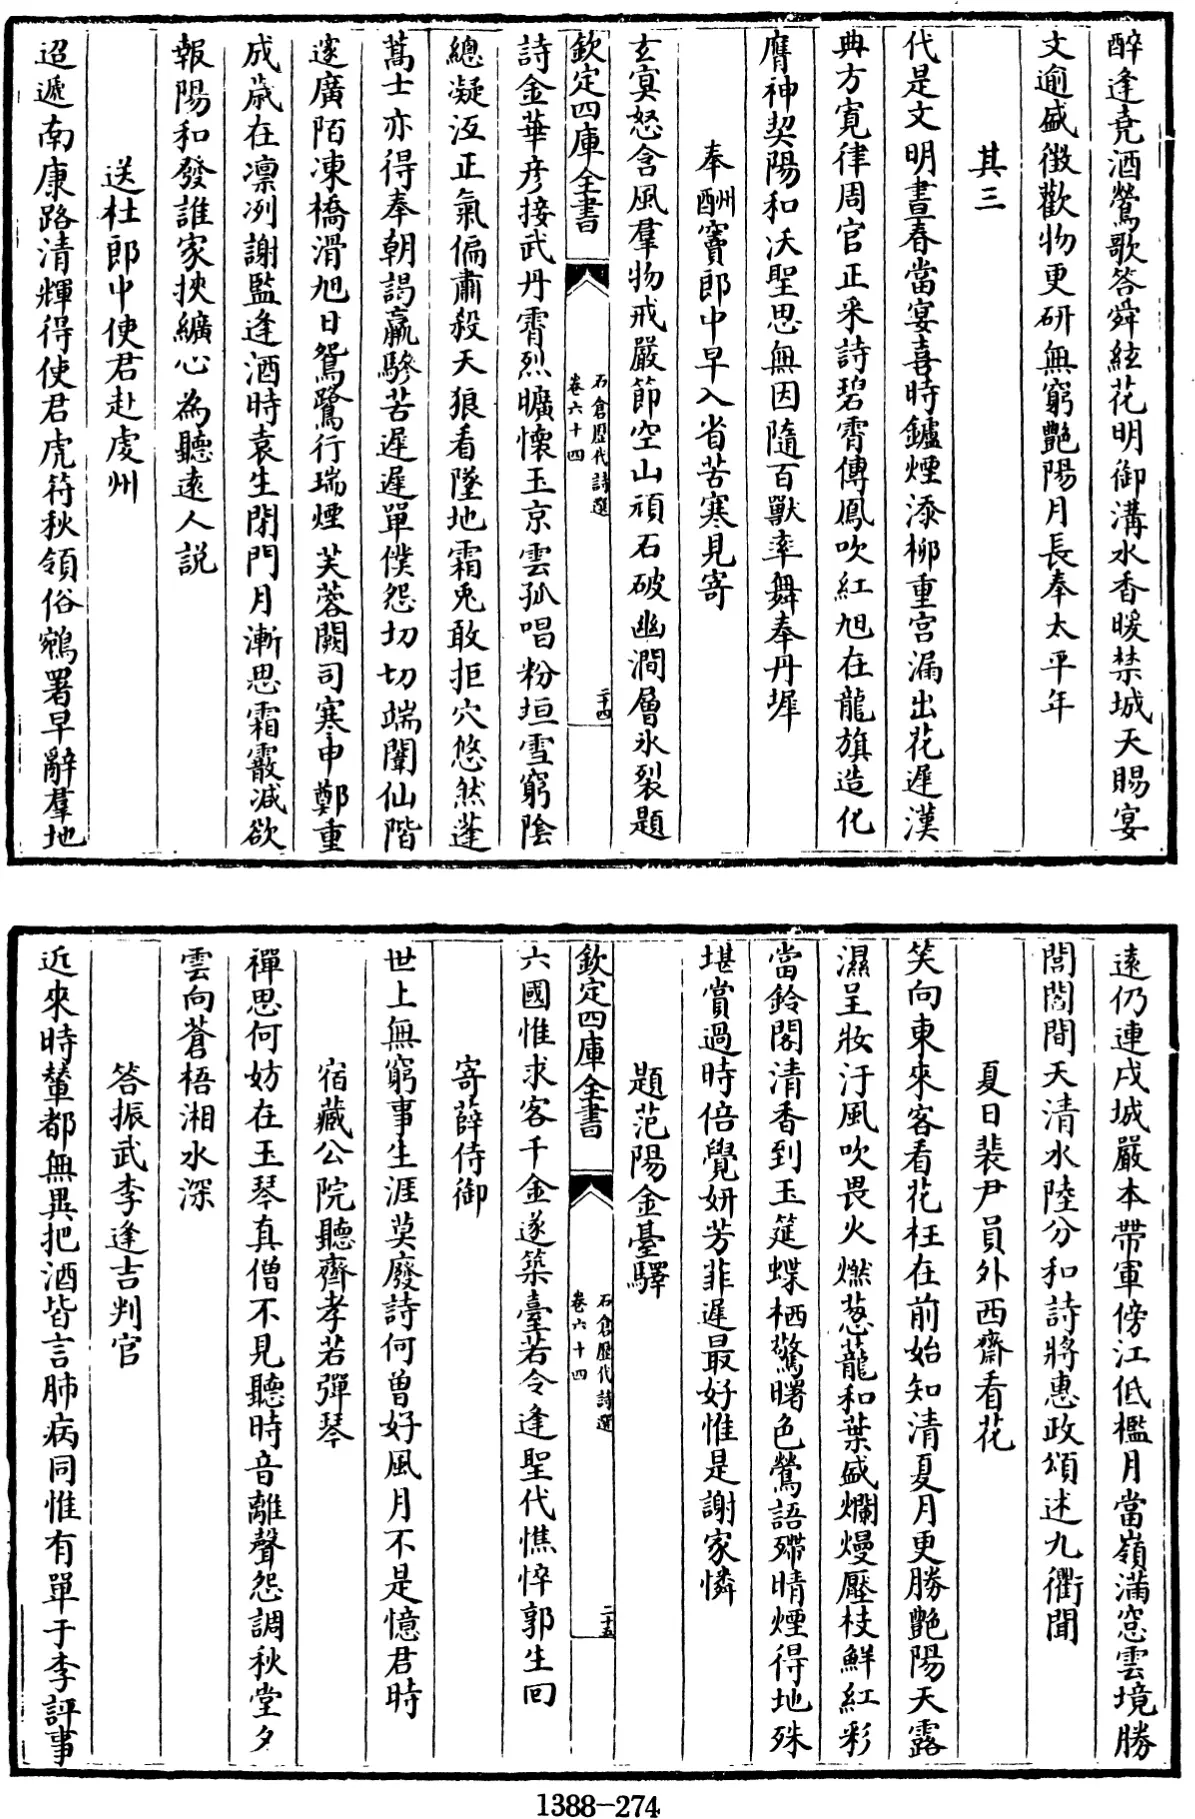 醉逢堯酒鶯歌答舜絃花明御溝水香暖禁城天賜宴
文逾盛徴歡物更研無窮艷陽月長奉太平年
其三
代是文明晝春當宴喜時鑪煙添柳重宫漏出花遲漢
典方寛律周官正采詩碧霄傅鳳吹紅旭在龍旗造化
膺神契陽和沃聖思無因隨百獸率舞奉丹墀
奉酬竇郎中早入省苦寒見寄
玄冥怒含風羣物戒嚴節空山頑石破幽澗層氷裂題
欽定四庫全書
石倉歴代詩選
卷六十四
二十四
詩金華彦接武丹霄烈曠懷玉京雲孤唱粉垣雪窮陰
總凝沍正氣偏肅殺天狼看墜地霜兎敢拒穴悠然蓬
蒿士亦得奉朝謁羸驂苦遲遲單僕怨切切端闈仙階
邃廣陌凍橋滑旭日鴛鷺行瑞煙芙蓉闕司寒申鄭重
成歳在凛冽謝監逢酒時袁生閉門月漸思霜霰减欲
報陽和發誰家挾纊心為聽遠人説
送杜郎中使君赴虔州
迢遞南康路清輝得使君虎符秋領俗鵷署早辭羣地
遠仍連戍城嚴本帶軍傍江低檻月當嶺滿窓雲境勝
閭閻間天清水陸分和詩將惠政頌述九衢聞
夏日裴尹員外西齋看花
笑向東來客看花枉在前始知清夏月更勝艷陽天露
濕呈妝汙風吹畏火燃葱蘢和葉盛爛熳壓枝鮮紅彩
當鈴閣清香到玉筵蝶栖驚曙色鶯語殢晴煙得地殊
堪賞過時倍覺妍芳菲遲最好惟是謝家憐
題范陽金臺驛
欽定四庫全書
石倉歴代詩選
卷六十四
二十五
六國惟求客千金遂築臺若令逢聖代憔悴郭生回
寄薛侍御
世上無窮事生涯莫廢詩何曽好風月不是憶君時
宿藏公院聽齊孝若彈琴
禪思何妨在玉琴真僧不見聽時音離聲怨調秋堂夕
雲向蒼梧湘水深
答振武李逢吉判官
近來時輩都無興把酒皆言肺病同惟有單于李評事
1388-274